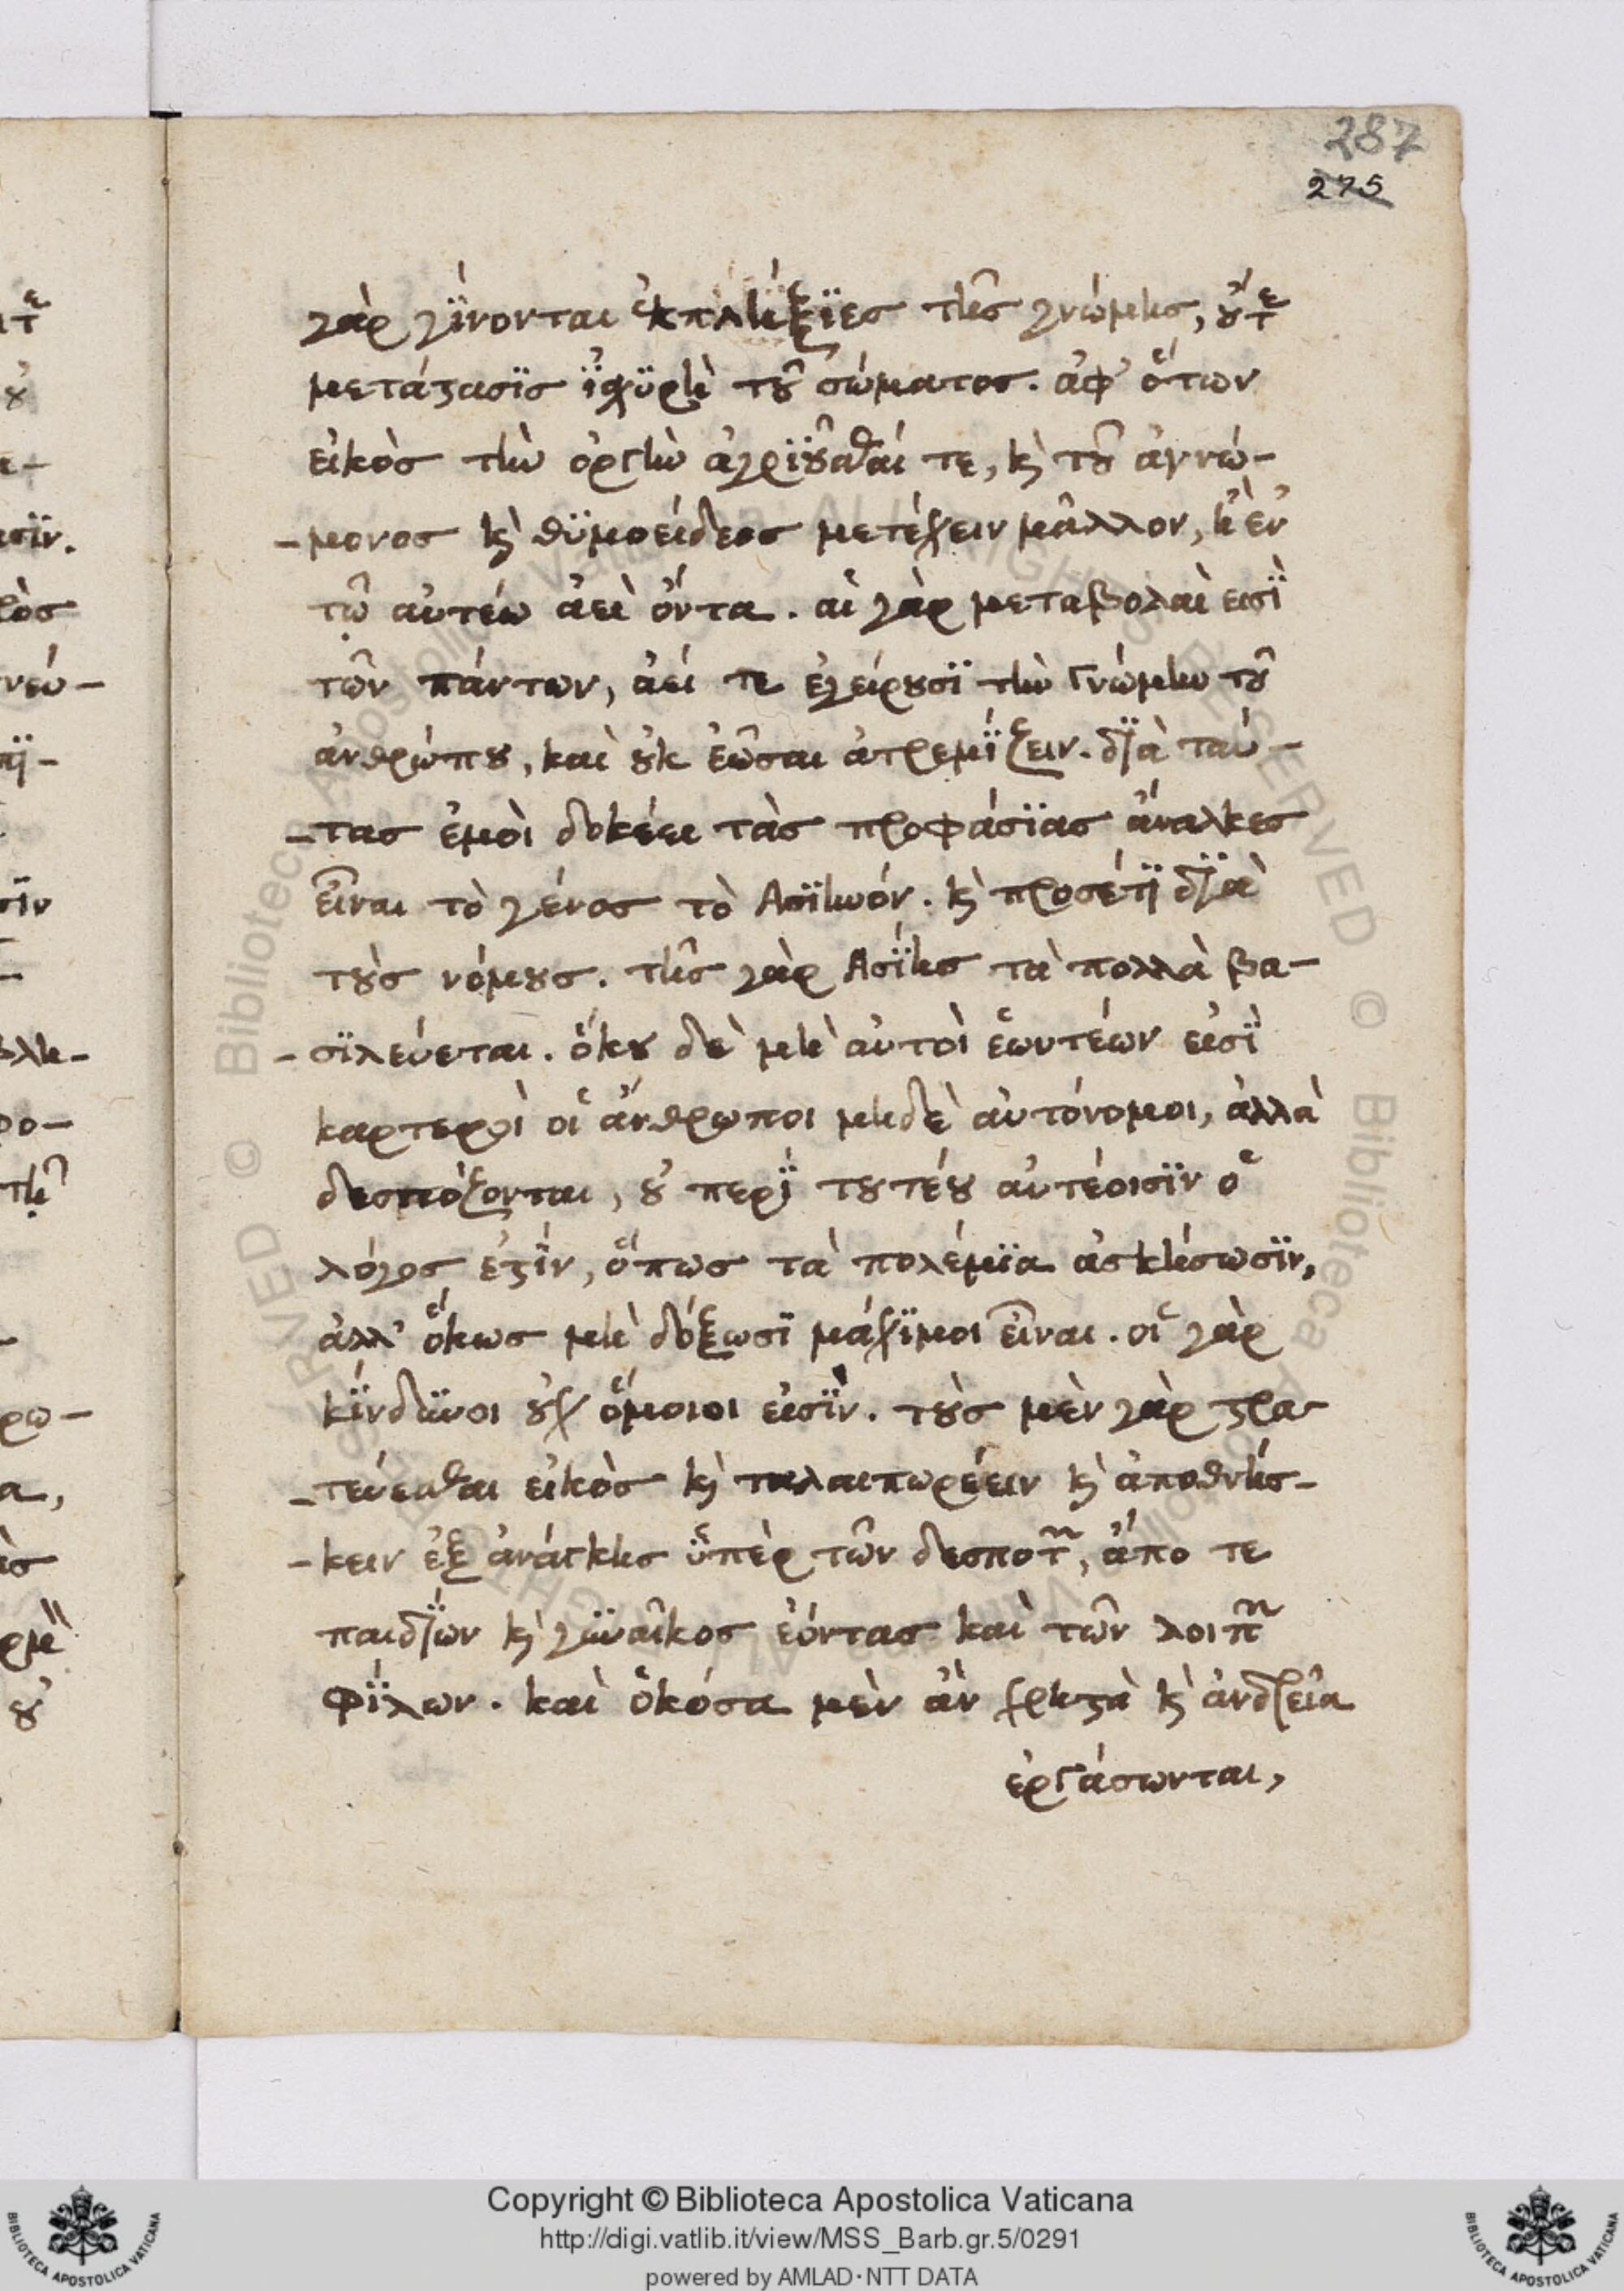 287
275
γὰρ γΐνονται ἐκπλήξϊες τῆς γνώμης, οὔτε
μετάστασϊς ἰ̈σχϋρὴ τοῦ σώματος. ἀφ' ὅτων
εἰκὸς τὴν ὀργὴν ἀγρϊοῦσθαί τε, κ̀ τοῦ ἀγνώ-
-μονος κ̀ θϋμοείδεος μετέχειν μᾶλλον, ἢ ἐν
τῷ αὐτέω ἀεὶ ὄντα. αἱ γὰρ μεταβολαὶ εἰσῒ
τῶν πάντων, ἀεί τε ἐγείρουσϊ τὴν γνώμην τοῦ
ἀνθρώπου, καὶ οὐκ ἐῶσαι ἀτρεμΐζειν. δϊὰ ταύ-
-τας ἐμοὶ δοκέει τὰς προφάσϊας ἄναλκες
εἶναι τὸ γένος τὸ Ασϊηνόν. κ̀ προσέτϊ δϊὰ
τοὺς νόμους. τῆς γὰρ Ασΐης τὰ πολλὰ βα-
-σϊλεύεται. ὅκου δὲ μὴ αὐτοὶ ἑωυτέων εἰσῒ
καρτεροὶ οἱ ἄνθρωποι μηδὲ αὐτόνομοι, ἀλλὰ
δεσπόζονται, οὐ περῒ τουτέου αὐτέοισϊν ὁ
λόγος ἐστΐν, ὅπως τὰ πολέμϊα ἀσκήσωσϊν,
ἀλλ' ὅκως μὴ δόξωσϊ μάχϊμοι εἶναι. οἱ γὰρ
κΐνδϋνοι οὐχ ὅμοιοι εἰσῒν. τοὺς μὲν γὰρ στρα-
-τεύεσθαι εἰκὸς κ̀ ταλαιπωρέειν κ̀ ἀποθνήσ-
-κειν ἐξ ἀνάγκης ὑ̈πὲρ τῶν δεσποτ͂, ἄπο τε
παιδΐων κ̀ γϋναῖκος ἐόντας καὶ τῶν λοιπ͂
φΐλων. καὶ ὁκόσα μὲν ἂν χρηστὰ κ̀ ἀνδρεῖα
ἐργάσωνται,
Copyright © Biblioteca Apostolica Vaticana
http://digi.vatlib.it/view/MSS_Barb.gr.5/0291
powered by AMLAD·NTT DATA